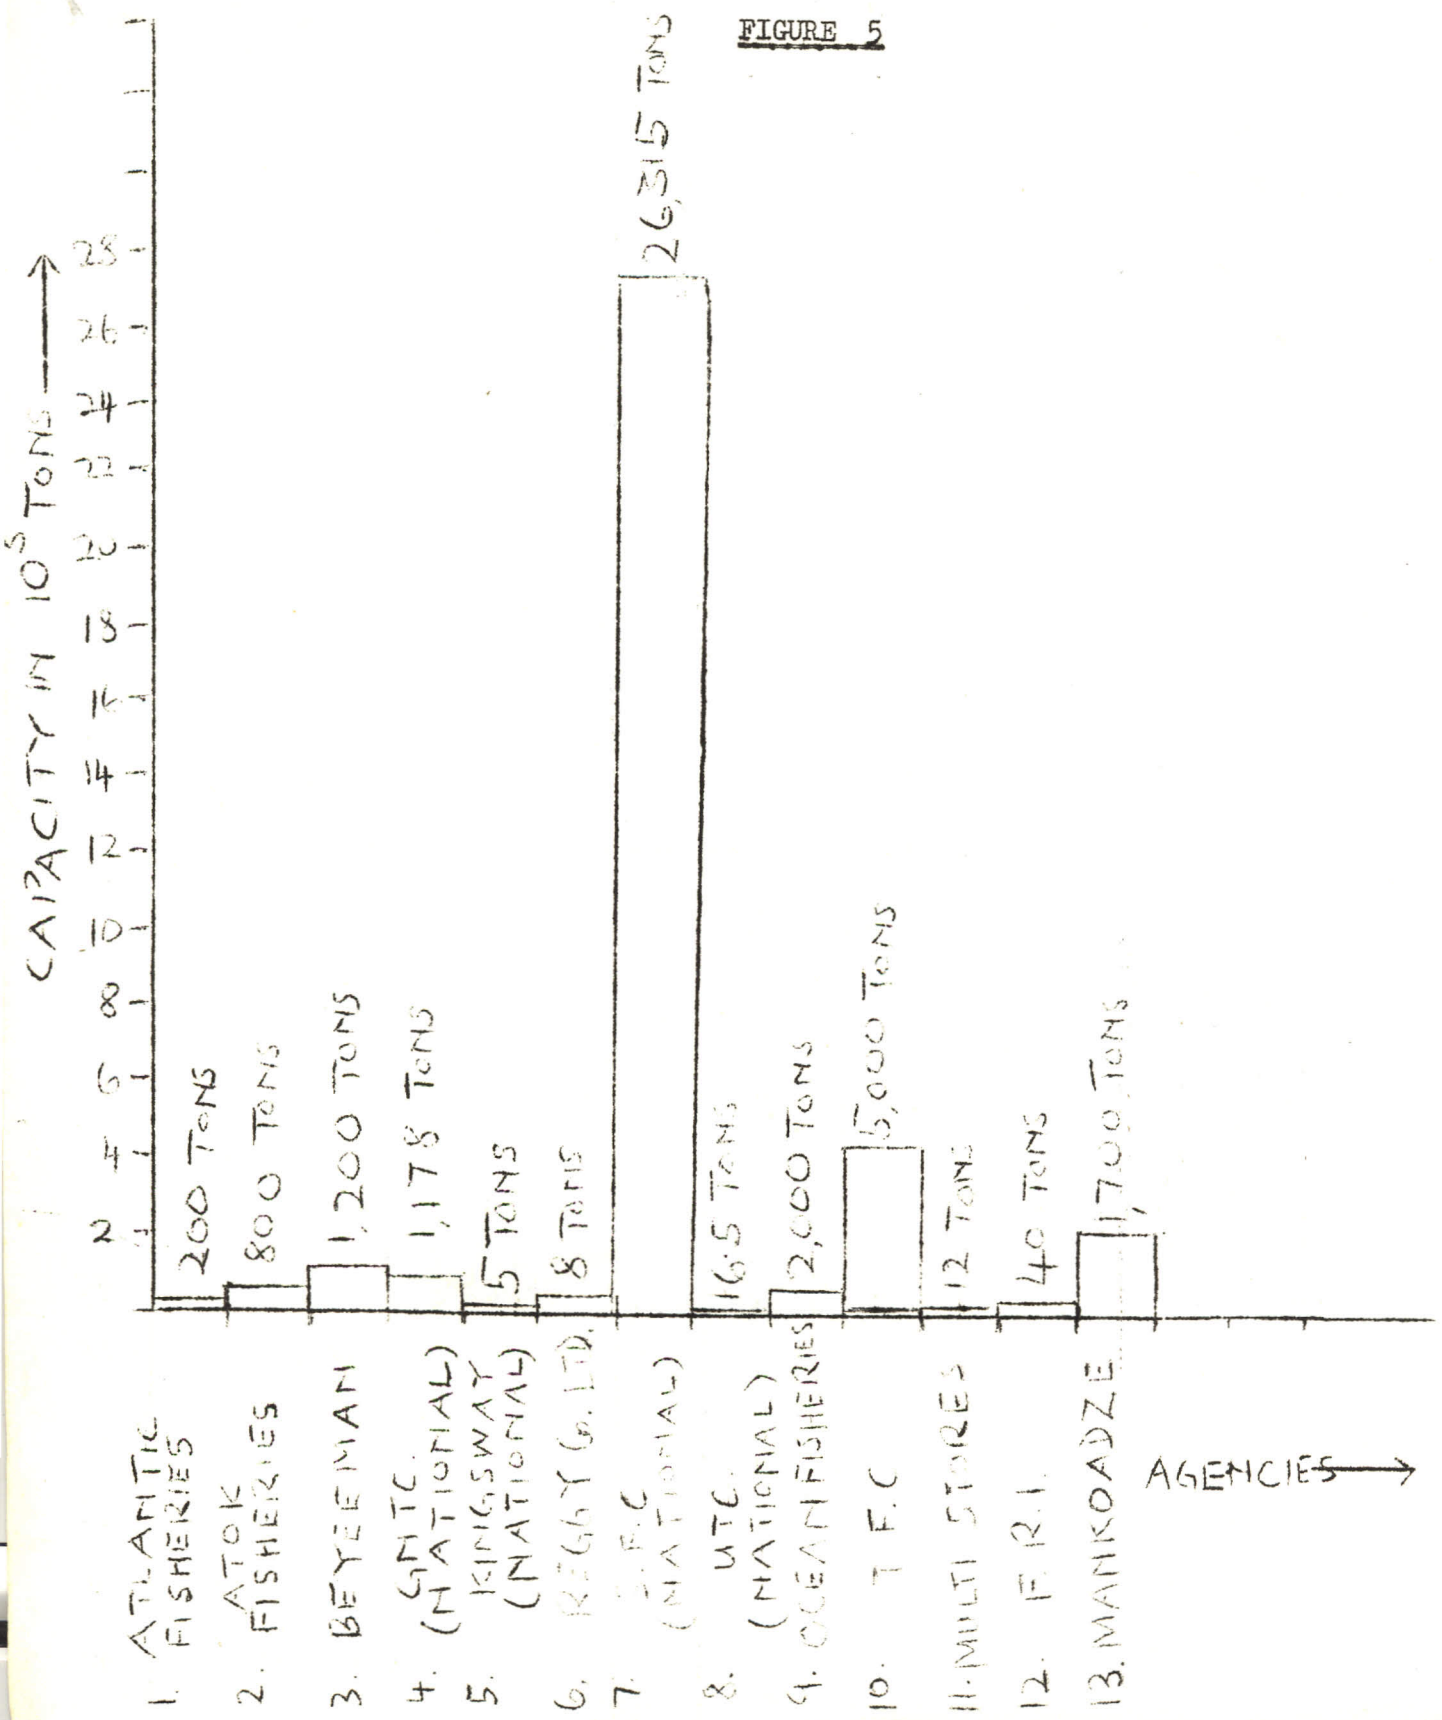 FIGURE 5
CAPACITY IN 10³ TONS
28
26
24
22
20
18
16
14
12
10
8
6
4
2
200 TONS
800 TONS
1,200 TONS
1,178 TONS
5 TONS
8 TONS
26,315 TONS
16.5 TONS
2,000 TONS
5,000 TONS
12 TONS
40 TONS
1,700 TONS
1. ATLANTIC
FISHERIES
2. ATOK
FISHERIES
3. BEYEEMAN
4. GNTC.
(NATIONAL)
5. KINGSWAY
(NATIONAL)
6. REGGY Co. LTD.
7. F.C
(NATIONAL)
8. UTC.
(NATIONAL)
9. OCEAN FISHERIES
10. T F.C
11. MULTI STORES
12. F. R. I.
13. MANKOADZE
AGENCIES